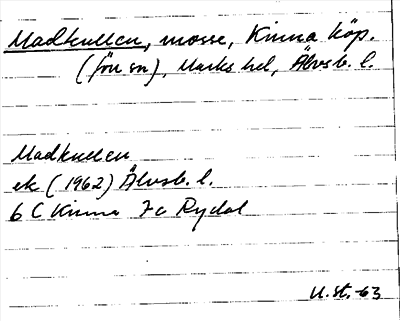 Madkullen, mosse, Kinna köp.
(förr sn), Marks hd, Älvsb. l.
Madkullen
ek (1962) Älvsb. l.
6 C Kinna 7 c Rydal
U. st. -63